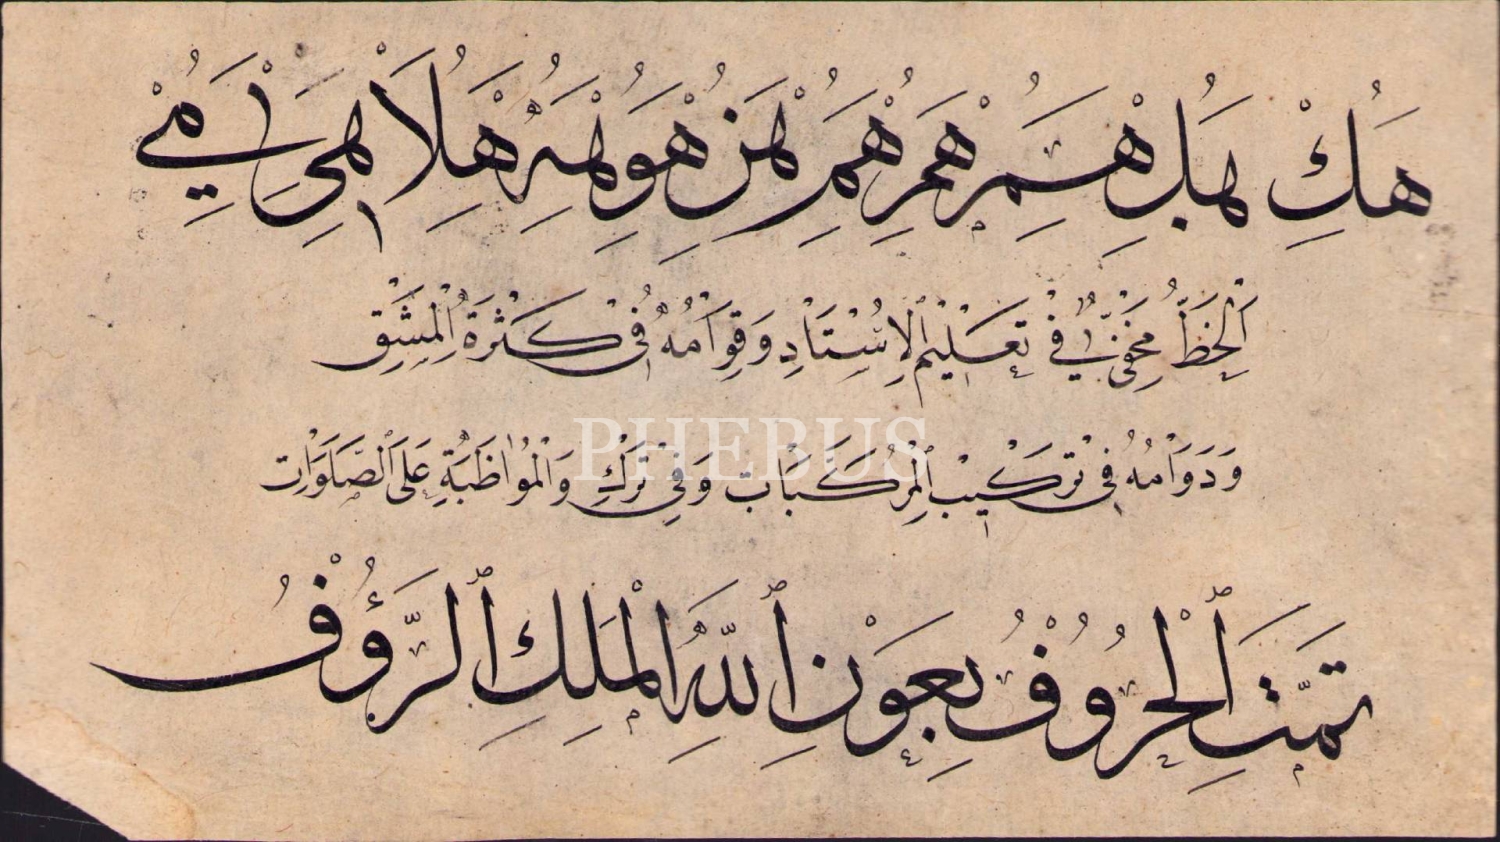 هك هل هم هم هم هن هو هه هلا هى مے
اَلْخَطُّ مَخْفِىٌّ فِى تَعْلِيْمِ الْاُسْتَاذِ وَقِوَامُهُ فِىْ كَثْرَةِ الْمَشْقِ
وَدَوَامُهُ فِى تَرْكِيْبِ الْمُرَكَّبَاتِ وَفِىْ تَرْكِ وَالْمُوَاظَبَةِ عَلَى الصَّلَوَاتِ
PHEBUS
تَمَّتِ الْحُرُوْفُ بِعَوْنِ اللّٰهِ الْمَلِكِ الرَّؤُفُ